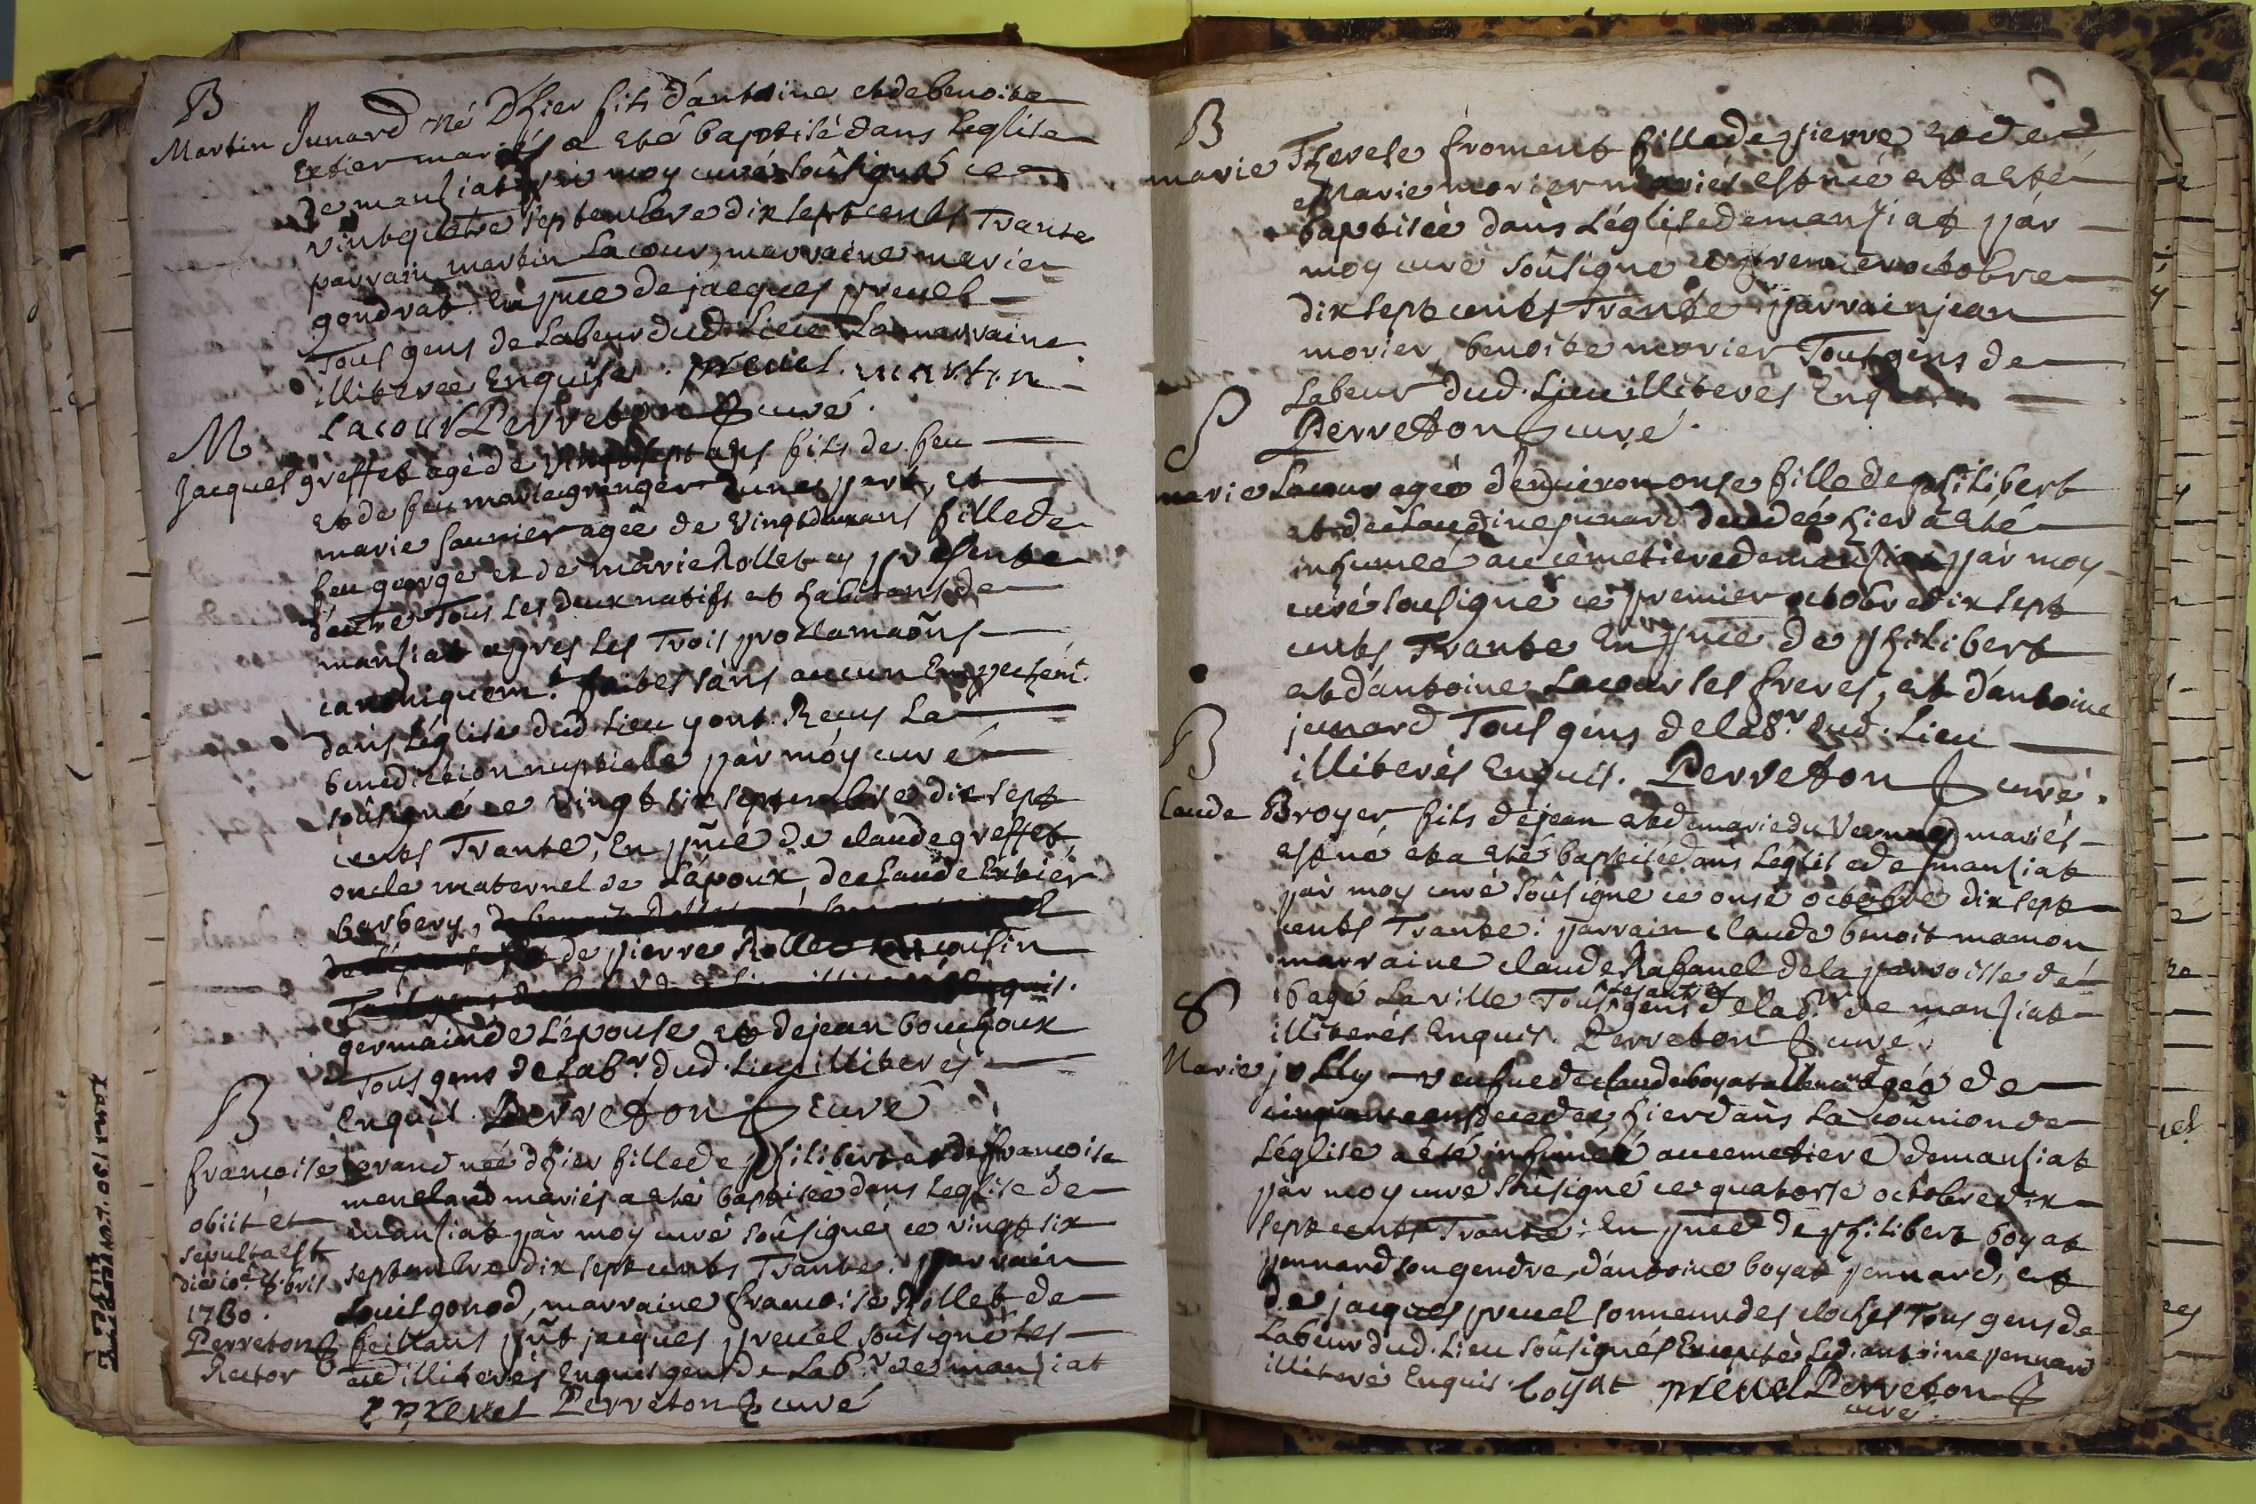 B
Martin Junard né Dhier fils d'antoine et de benoite
Extier mariés a eté baptisé dans leglise
de mansiat par moy curé soûsigné ce
vintquatre septembre dix sept cents Trante
parrain martin Lacour, marraine marie
gondrat. En pñce de jacques preuel
Tous gens de Labeur dud. Lieu La marraine
illiterée Enquise. preuel. martin
Lacour Perreton curé.
M
Jacques greffet agé de vingt sept ans fils de feu
et de feu marie granger dune part, et
marie saunier agée de vingt deux ans fille de
feu george et de marie Rollet cy presente
d'autre Tous les deux natifs et habitans de
mansiat apres les Trois proclamaõns
canoniquem.t faites sans aucun Empechem.t
dans l'église dud Lieu y ont Reçus La
benediction nuptiale par moy curé
soûsigné ce vingt six septembre dix sept
cents Trante, En pñce de claude greffet,
oncle maternel de l'époux, de claude Extier
barbery,
de pierre Rollet cousin
Enquis.
germain de L'épouse et de jean bouchoux
Tous gens de Lab.r dud. Lieu illiterés
Enquis. Perreton curé
B
francoise Morand née d'hier fille de philibert et de francoise
meneland mariés a eté baptisée dans leglise de
mansiat par moy curé soûsigné ce vingt six
septembre dix sept cents Trante: parrain
Louis gonod, marraine francoise Rollet de
feillans pñt jacques preuel soûsigné les
illiterés Enquis gens de Lab.r de mansiat
p preuel Perreton curé
obiit et
sepulta est
die 10.e 8.bris
1730.
Perreton
Rector
B
marie Therese froment fille de pierre et de
Marie morier mariés est née et a eté
baptisée dans L'église de mansiat par
moy curé soûsigné ce premier octobre
dix sept cents Trante parrain jean
morier, benoite morier Tous gens de
Labeur dud. Lieu illiterés Enquis
Perreton curé.
S
marie Lacour agée d'environ onse fille de philibert
et de claudine junard decedée hier a eté
inhumée au cemetiere de mansiat par moy
curé sousigné ce premier octobre dix sept
cents Trante En pñce de philibert
et d'antoine Lacour ses freres, et d'antoine
junard Tous gens de lab.r dud. Lieu
illiterés Enquis. Perreton curé.
B
Claude Broyer fils de jean et de marie du Vernay mariés
est né et a eté baptisé dans L'église de mansiat
par moy curé soûsigné ce onse octobre dix sept
cents Trante: parrain claude benoit mamon
marraine claude Rafanel de la parroisse de
bagé La ville Tous les autres gens de lab.r de mansiat
illiterés Enquis. Perreton curé.
S
Marie jolly veufue de claude boyat agée de
cinquante ans decedée hier dans La coûmion de
L'église a été inhumée au cemetiere de mansiat
par moy curé soûsigné ce quatorse octobre dix
sept cents Trante: En pñce de philibert boyat
ponnard son gendre, d'antoine boyat ponnard, et
de jacques preuel sonneur des cloches Tous gens de
Labeur dud. Lieu soûsignés Excepté Led. antoine ponnard
illiteré Enquis. boyat preuel Perreton
curé.